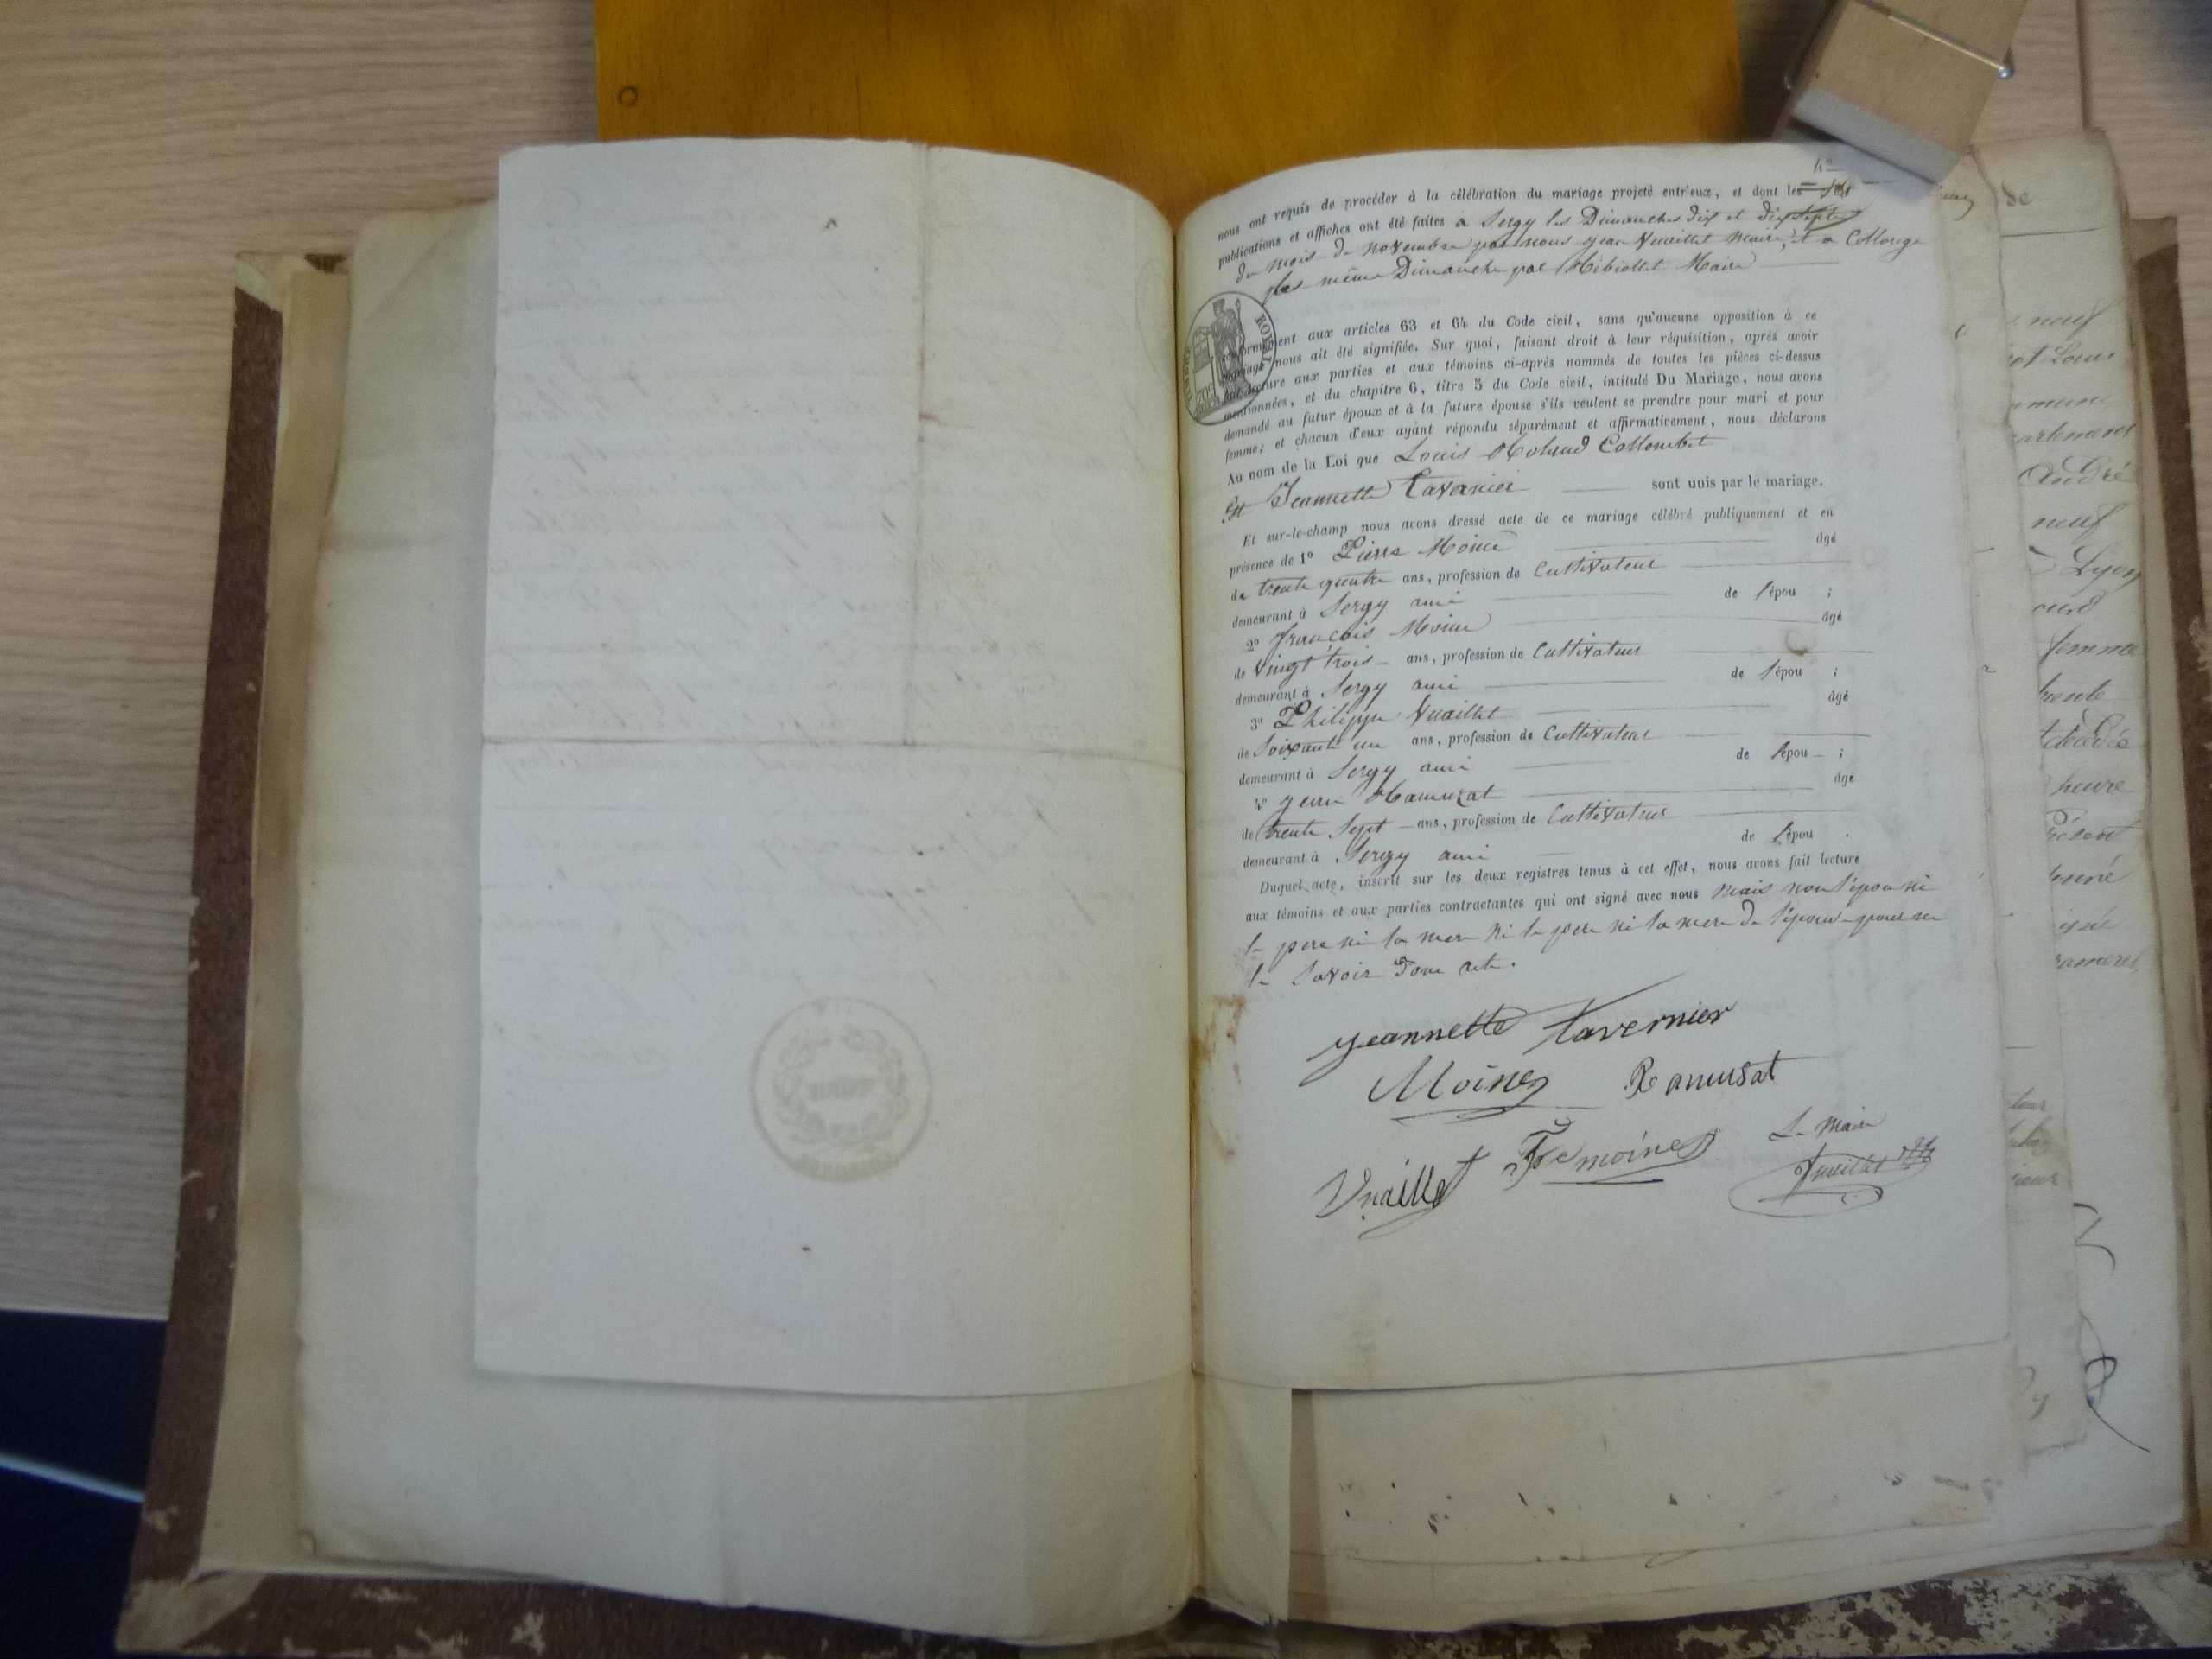 4°
nous ont requis de procéder à la célébration du mariage projeté entr'eux, et dont les
publications et affiches ont été faites a Sergy les Dimanches dix et dix sept
du mois de novembre par nous jean Vuaillet Maire, et a Collonge
les même Dimanche par Maire
conformément aux articles 63 et 64 du Code civil, sans qu'aucune opposition à ce
mariage nous ait été signifiée. Sur quoi, faisant droit à leur réquisition, après avoir
fait lecture aux parties et aux témoins ci-après nommés de toutes les pièces ci-dessus
mentionnées, et du chapitre 6, titre 5 du Code civil, intitulé Du Mariage, nous avons
demandé au futur époux et à la future épouse s'ils veulent se prendre pour mari et pour
femme; et chacun d'eux ayant répondu séparément et affirmativement, nous déclarons
Au nom de la Loi que Louis Roland Collombet
Et Jeannette Tavernier sont unis par le mariage.
Et sur-le-champ nous avons dressé acte de ce mariage célébré publiquement et en
présence de 1° Pierre Moine âgé
de trente quatre ans, profession de Cultivateur
demeurant à Sergy ami de l'épou ;
2° François Moine âgé
de vingt trois ans, profession de Cultivateur
demeurant à Sergy ami de l'épou ;
3° Philippe Vuaillet âgé
de Soixante un ans, profession de Cultivateur
demeurant à Sergy ami de l'épou ;
4° jean Ramuzat âgé
de trente Sept ans, profession de Cultivateur
demeurant à Sergy ami de l'épou .
Duquel acte, inscrit sur les deux registres tenus à cet effet, nous avons fait lecture
aux témoins et aux parties contractantes qui ont signé avec nous mais non l'épou ni
le pere ni la mere ni le pere ni la mere de l'épouse pour ne
le Savoir Donc acte.
Jeannette tavernier
Moine Ramusat
Vuaillet Fs moine Le Maire
Vuaillet
TIMBRE ROYAL
neuf
Louis
André
neuf
Lyon
femme
trente
heure